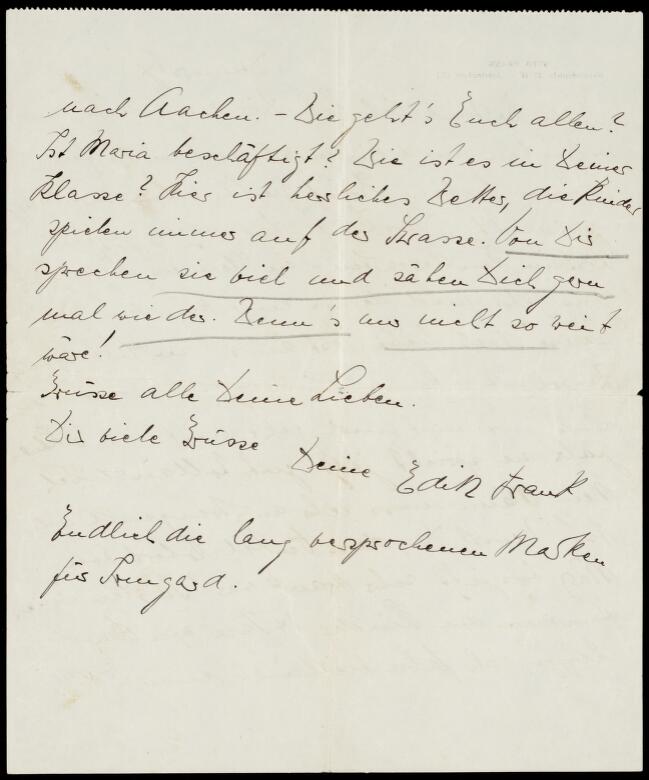 nach Aachen. – Wie geht's Euch allen?
Ist Maria beschäftigt? Wie ist es in Deiner
Klasse? Hier ist herrliches Wetter, die Kinder
spielen immer auf der Strasse. Von Dir
sprechen sie viel und sähen Dich gern
mal wieder. Wenn's nur nicht so weit
wäre!
Grüsse alle Deine Lieben.
Dir viele Grüsse
Deine Edith Frank
Endlich die lang versprochenen Marken
für Irmgard.